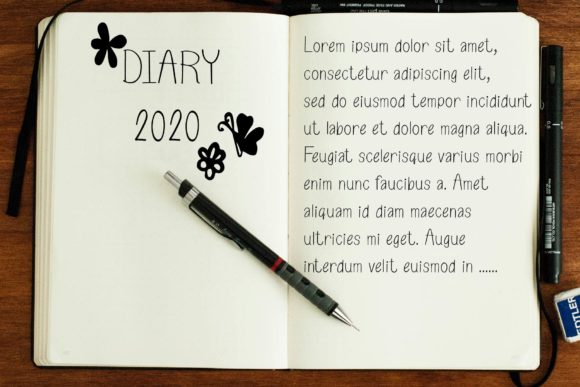 DIARY
2020
Lorem ipsum dolor sit amet,
consectetur adipiscing elit,
sed do eiusmod tempor incididunt
ut labore et dolore magna aliqua.
Feugiat scelerisque varius morbi
enim nunc faucibus a. Amet
aliquam id diam maecenas
ultricies mi eget. Augue
interdum velit euismod in ......
EDTLER